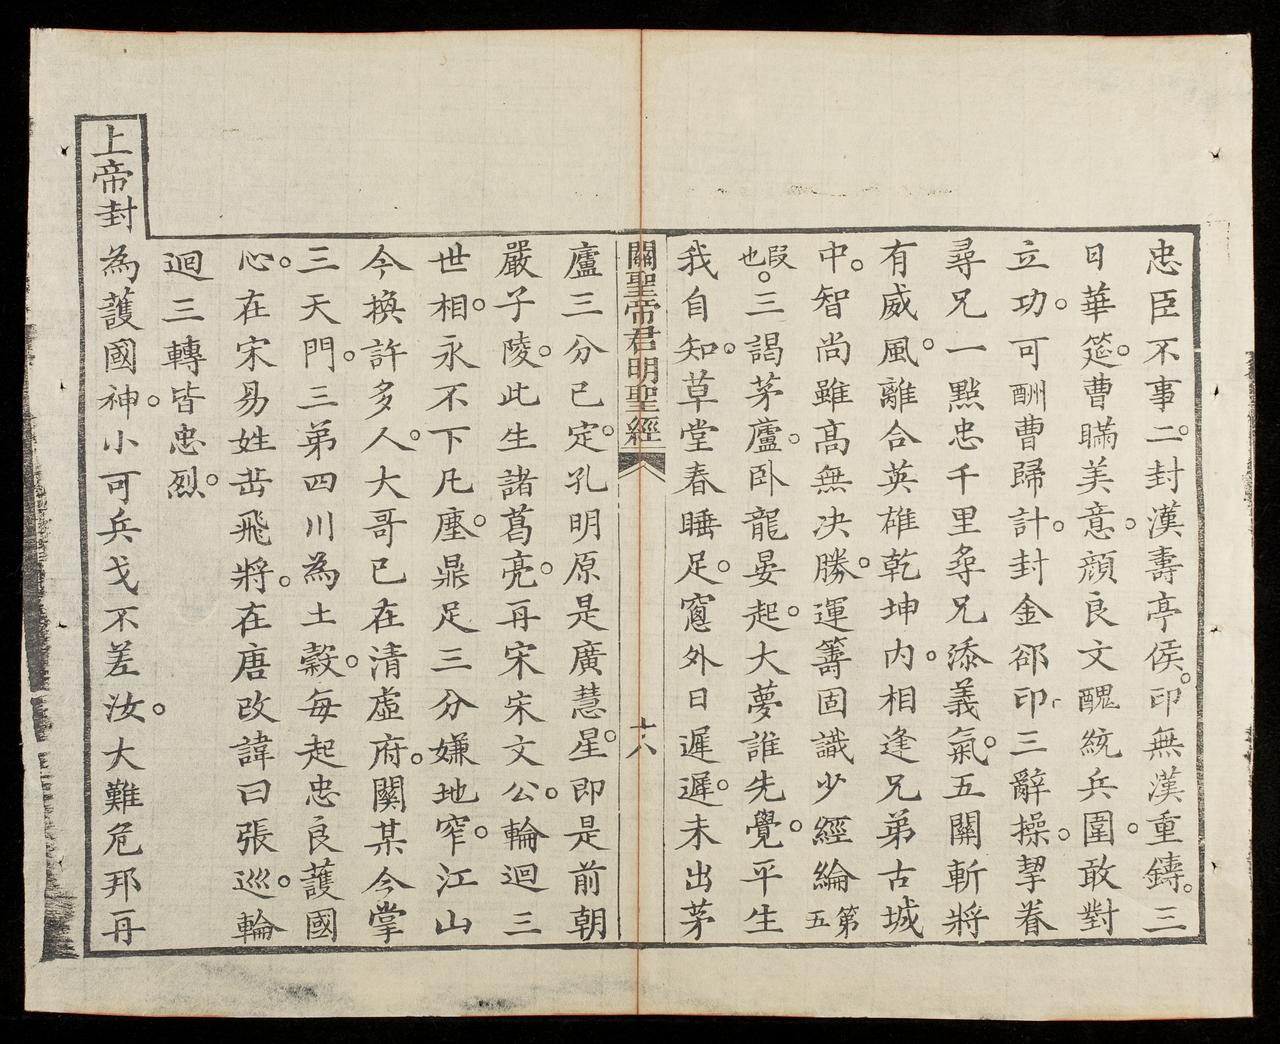 忠臣不事二封漢壽亭侯印無漢重鑄三
日華筵曹瞞美意顔良文醜統兵圍敢對
立功可酬曹歸計封金郤印三辭操挈眷
尋兄一點忠千里尋兄添義氣五關斬將
有威風離合英雄乾坤内相逢兄弟古城
中智尚雖高無决勝運籌固識少經綸第五
段也三謁茅廬卧龍晏起大夢誰先覺平生
我自知草堂春睡足窻外日遲遲未出茅
關聖帝君明聖經
十八
廬三分已定孔明原是廣慧星即是前朝
嚴子陵此生諸葛亮再宋宋文公輪迴三
世相永不下凡塵鼎足三分嫌地窄江山
今換許多人大哥已在清虛府關某今掌
三天門三弟四川為土穀每起忠良護國
心在宋易姓岳飛將在唐改諱曰張巡輪
迴三轉皆忠烈
上帝封為護國神小可兵戈不差汝大難危邦再